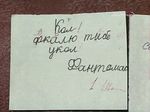 Кол!
вколю тибе
укол
Фантомас